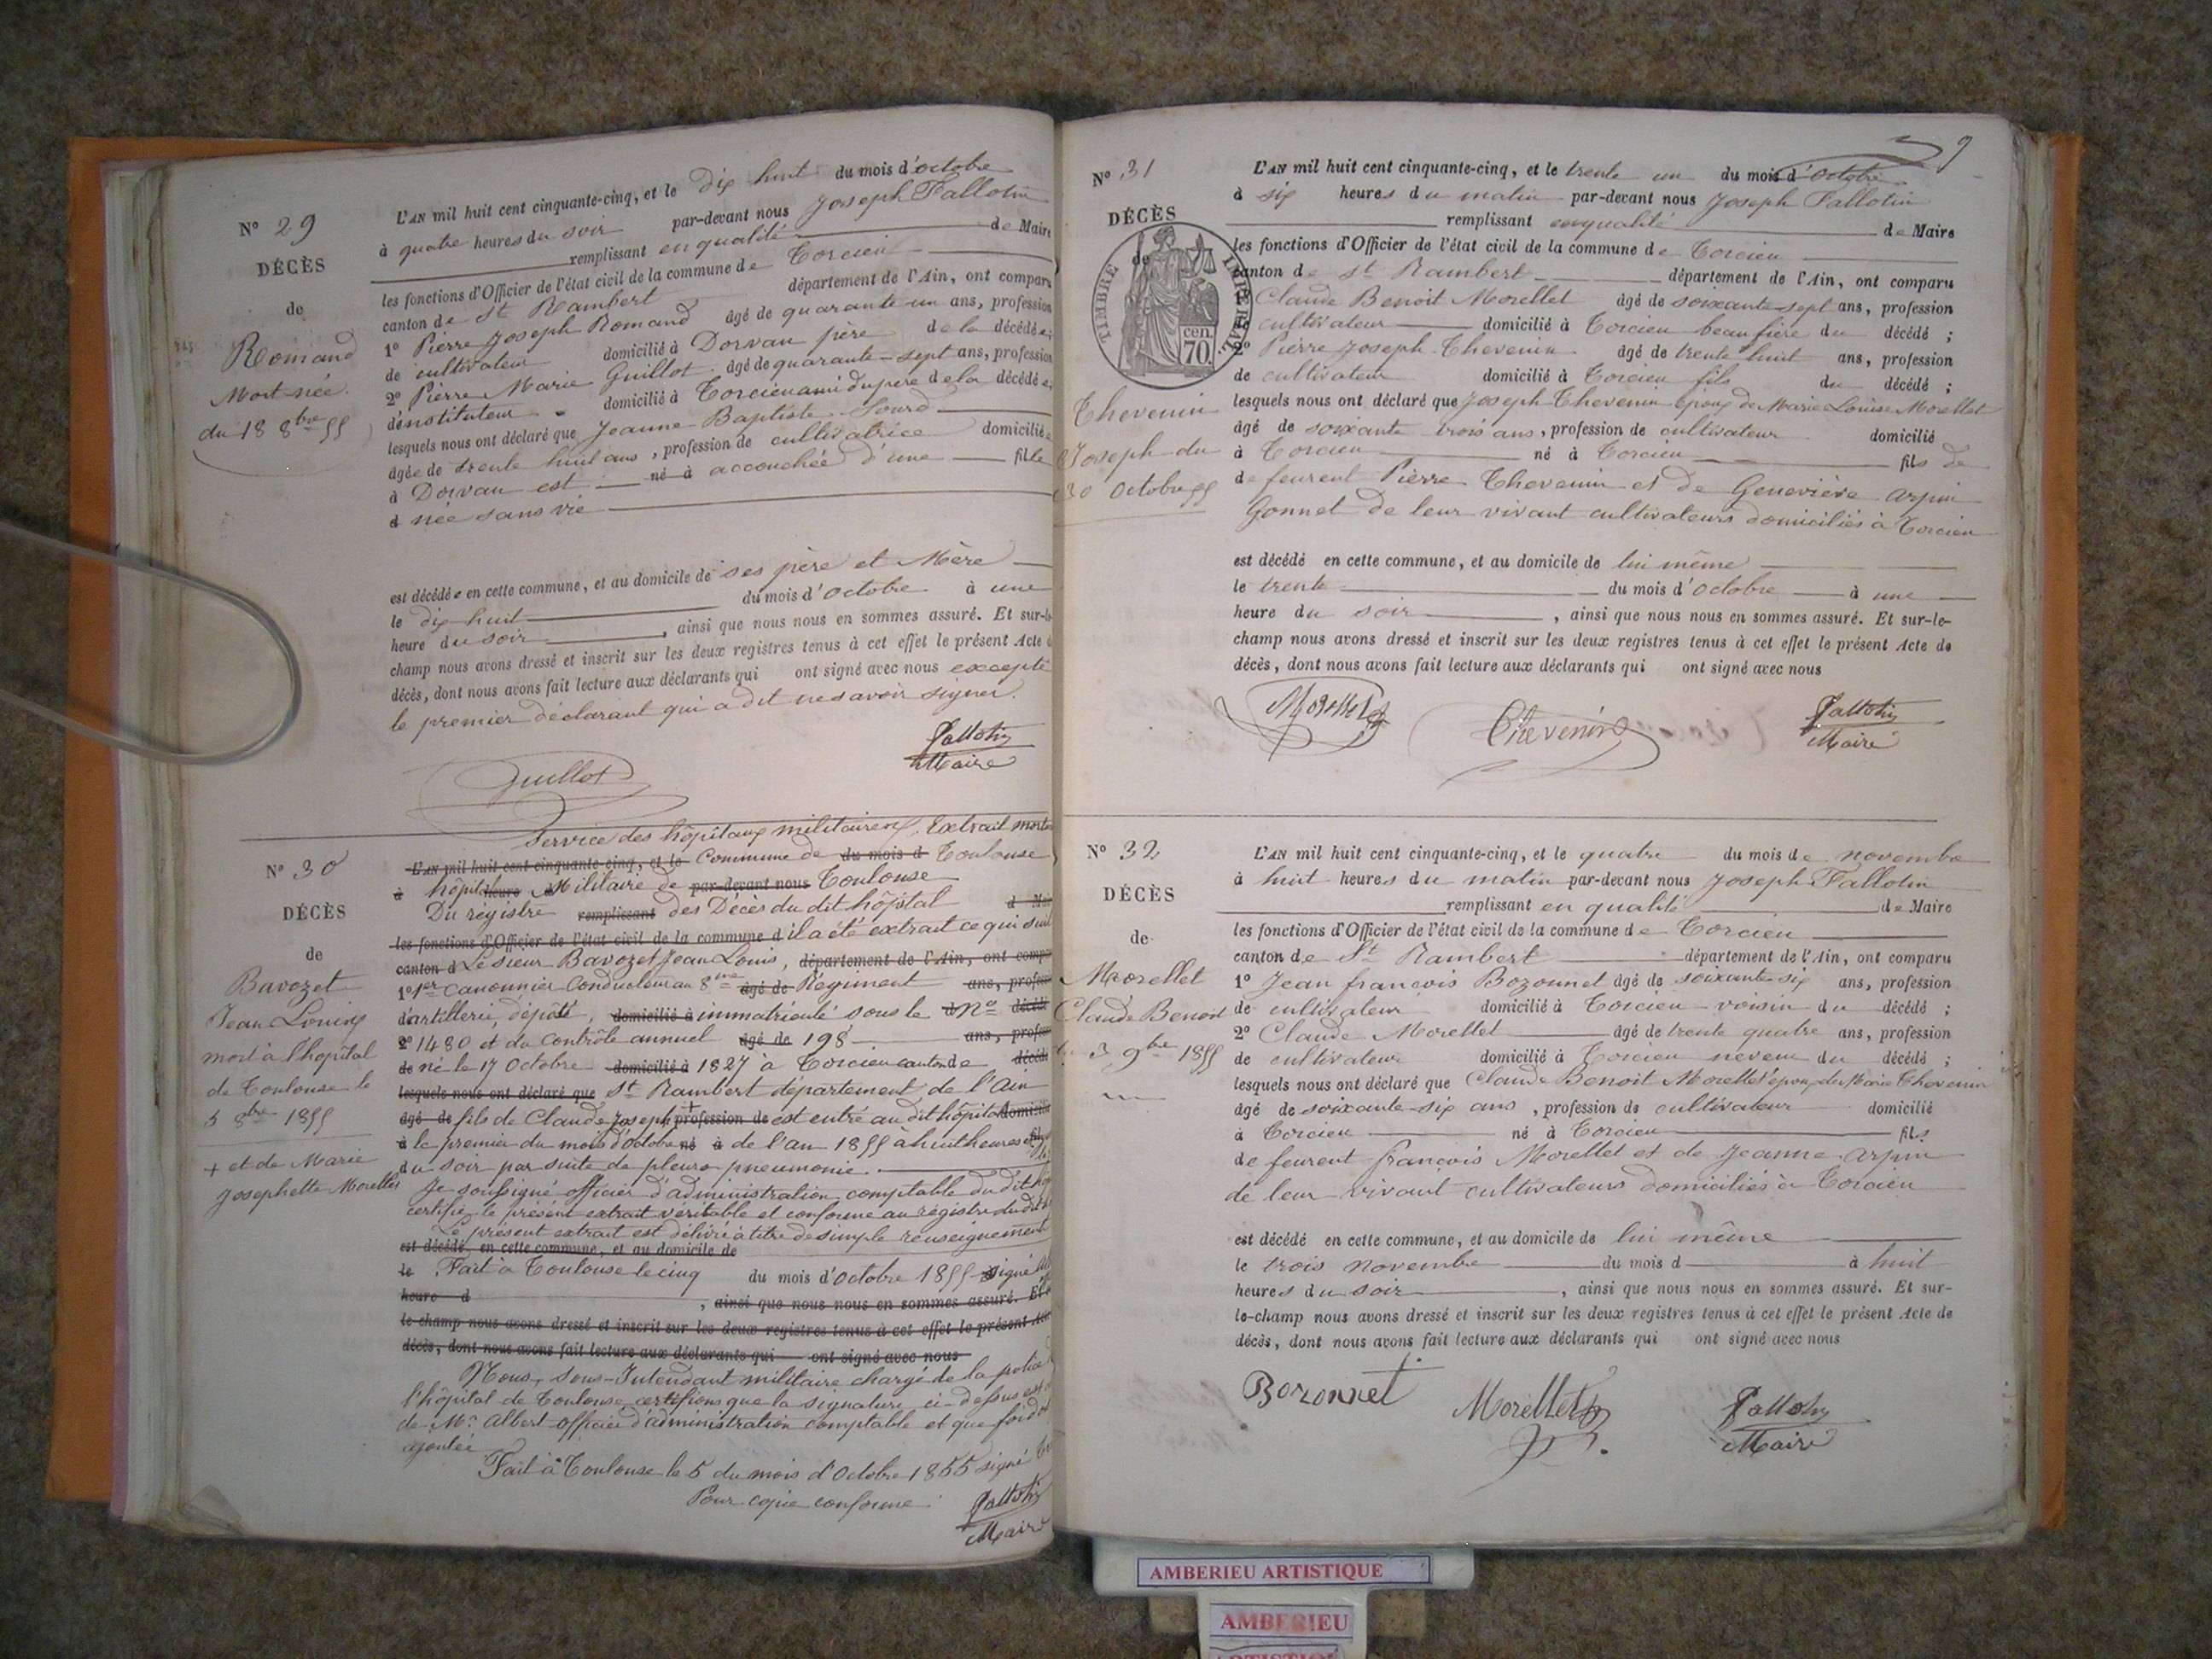 N° 29
DÉCÈS
de
Romand
Mort-née
du 18 8bre 55
L'AN mil huit cent cinquante-cinq, et le dix huit du mois d'octobre
à quatre heures du soir par-devant nous Joseph Fallotin
remplissant en qualité de Maire
les fonctions d'Officier de l'état civil de la commune de Torcieu
canton de St Rambert département de l'Ain, ont comparu
1° Pierre Joseph Romand âgé de quarante-un ans, profession
de cultivateur domicilié à Dorvan père de la décédée;
2° Pierre Marie Guillot âgé de quarante-sept ans, profession
d'instituteur domicilié à Torcieu ami du père de la décédée
lesquels nous ont déclaré que Jeanne Baptiste Sourd
âgée de trente huit ans, profession de cultivatrice domiciliée
à Dorvan est né à accouchée d'une fille
d née sans vie
est décédée en cette commune, et au domicile de ses père et Mère
le dix huit du mois d'octobre à une
heure du soir, ainsi que nous nous en sommes assuré. Et sur-le-
champ nous avons dressé et inscrit sur les deux registres tenus à cet effet le présent Acte de
décès, dont nous avons fait lecture aux déclarants qui ont signé avec nous excepté
le premier déclarant qui a dit ne savoir signer.
Fallotin
Maire
Guillot
N° 30
DÉCÈS
de
Bavozet
Jean Louis
mort à l'hôpital
de Toulouse le
5 8bre 1855
+ et de Marie
Josephette Morellet
Service des hôpitaux militaires. Extrait mortu
L'AN mil huit cent cinquante-cinq, et le Commune de du mois d Toulouse
à hôpital heure Militaire de par-devant nous Toulouse
Du régistre remplissant des Décès du dit hôpital d Mai
les fonctions d'Officier de l'état civil de la commune d il a été extrait ce qui suit
canton d Le sieur Bavozet Jean Louis, département de l'Ain, ont compa
1° 1er canonnier conducteur au 8me âgé de Régiment ans, profess
d'artillerie, dépôt, domicilié à immatriculé sous le N° décédé
2° 1480 et du contrôle annuel âgé de 198 ans, profess
de né le 17 Octobre domicilié à 1827 à Torcieu canton de décédé
lesquels nous ont déclaré que St Rambert département de l'ain
âgé de fils de Claude Joseph + profession de est entré au dit hôpital domicilié
à le premier du mois d'octobre né à de l'an 1855 à huit heures
du soir par suite de pleuro pneumonie.
Je soussigné officier d'administration comptable du dit
certifie le présent extrait véritable et conforme au régistre du dit
Le présent extrait est délivré à titre de simple renseignement
est décédé en cette commune, et au domicile de
le Fait à Toulouse le cinq du mois d'octobre 1855 signé
heure d, ainsi que nous nous en sommes assuré. Et
le-champ nous avons dressé et inscrit sur les deux registres tenus à cet effet le présent Acte
décès, dont nous avons fait lecture aux déclarants qui ont signé avec nous
Nous, sous-Intendant militaire chargé de la police
l'hôpital de Toulouse, certifions que la signature ci-dessus est
de Mr Albert officier d'administration comptable et que foi doit
ajoutée
Fait à Toulouse le 5 du mois d'Octobre 1855 signé
Pour copie conforme
Fallotin
Maire
9
N° 31
DÉCÈS
de
TIMBRE IMPÉRIAL
70 cen.
Thevenin
Joseph du
30 octobre 55
L'AN mil huit cent cinquante-cinq, et le trente un du mois d'octobre
à six heures du matin par-devant nous Joseph Fallotin
remplissant en qualité de Maire
les fonctions d'Officier de l'état civil de la commune de Torcieu
canton de St Rambert département de l'Ain, ont comparu
1° Claude Benoit Morellet âgé de soixante-sept ans, profession
de cultivateur domicilié à Torcieu beau frère du décédé;
2° Pierre Joseph Thevenin âgé de trente huit ans, profession
de cultivateur domicilié à Torcieu fils du décédé;
lesquels nous ont déclaré que Joseph Thevenin époux de Marie Louise Morellet
âgé de soixante trois ans, profession de cultivateur domicilié
à Torcieu né à Torcieu fils de
de feurent Pierre Thevenin et de Geneviève arpin
Gonnet de leur vivant cultivateurs domiciliés à Torcieu
est décédé en cette commune, et au domicile de lui même
le trente du mois d'octobre à une
heure du soir, ainsi que nous nous en sommes assuré. Et sur-le-
champ nous avons dressé et inscrit sur les deux registres tenus à cet effet le présent Acte de
décès, dont nous avons fait lecture aux déclarants qui ont signé avec nous
Morellet
Thevenin
Fallotin
Maire
N° 32
DÉCÈS
de
Morellet
Claude Benoit
du 3 9bre 1855
L'AN mil huit cent cinquante-cinq, et le quatre du mois de novembre
à huit heures du matin par-devant nous Joseph Fallotin
remplissant en qualité de Maire
les fonctions d'Officier de l'état civil de la commune de Torcieu
canton de St Rambert département de l'Ain, ont comparu
1° Jean françois Bozonnet âgé de soixante six ans, profession
de cultivateur domicilié à Torcieu voisin du décédé;
2° Claude Morellet âgé de trente quatre ans, profession
de cultivateur domicilié à Torcieu neveu du décédé;
lesquels nous ont déclaré que Claude Benoit Morellet époux de Marie Thevenin
âgé de soixante-six ans, profession de cultivateur domicilié
à Torcieu né à Torcieu fils
de feurent françois Morellet et de Jeanne arpin
de leur vivant cultivateurs domiciliés à Torcieu
est décédé en cette commune, et au domicile de lui même
le trois novembre du mois d à huit
heures du soir, ainsi que nous nous en sommes assuré. Et sur-
le-champ nous avons dressé et inscrit sur les deux registres tenus à cet effet le présent Acte de
décès, dont nous avons fait lecture aux déclarants qui ont signé avec nous
Bozonnet
Morellet
Fallotin
Maire
AMBERIEU ARTISTIQUE
AMBERIEU
ARTISTIQUE